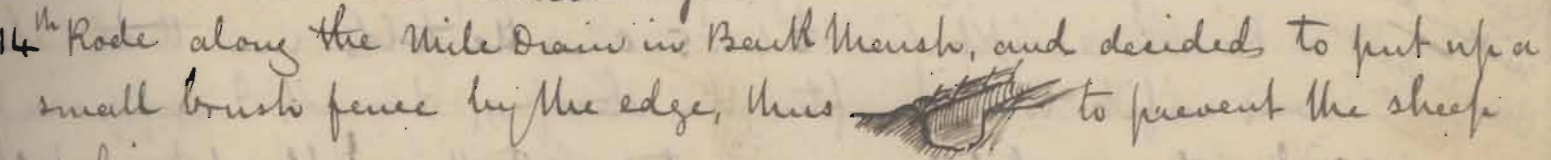 14th Rode along the Mile Drain in Back Marsh, and decided to put up a
small brush fence by the edge, thus to prevent the sheep